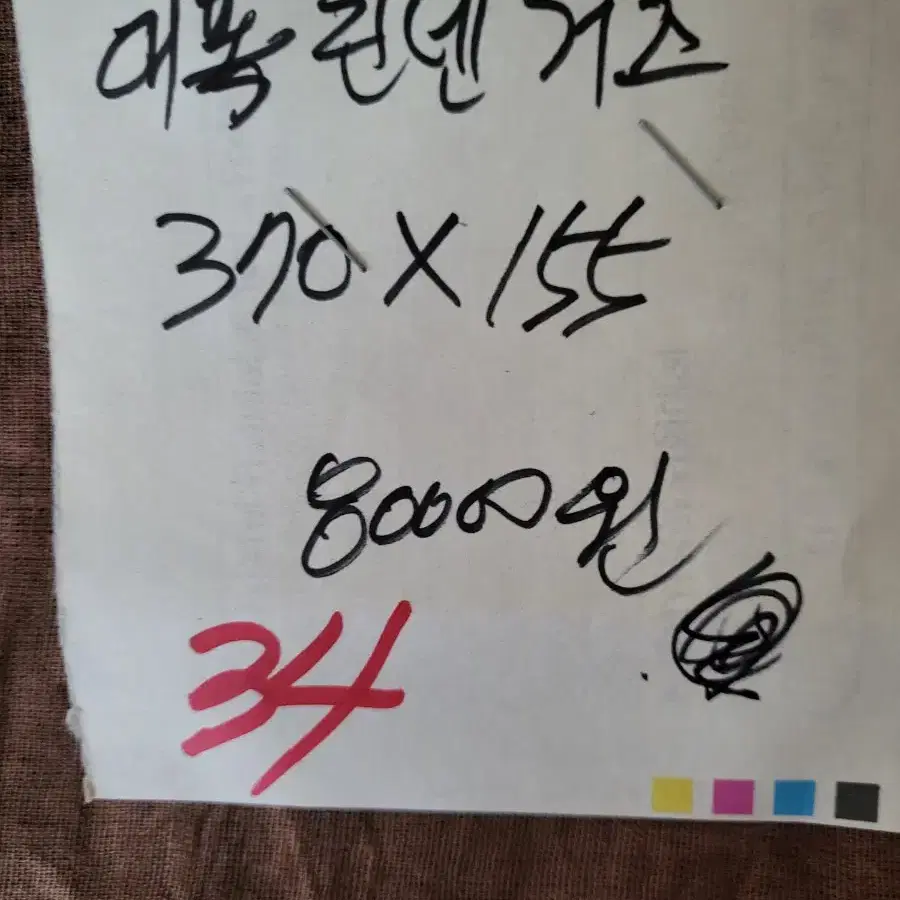 대폭 린넨 거즈
370 X 155
8000원
34